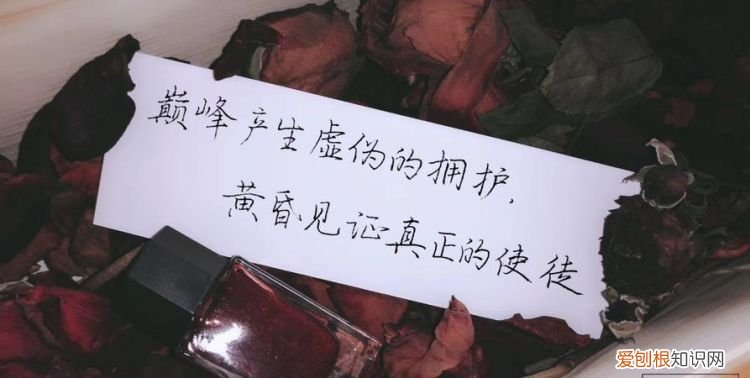 巅峰产生虚伪的拥护,
黄昏见证真正的使徒
爱刨根知识网